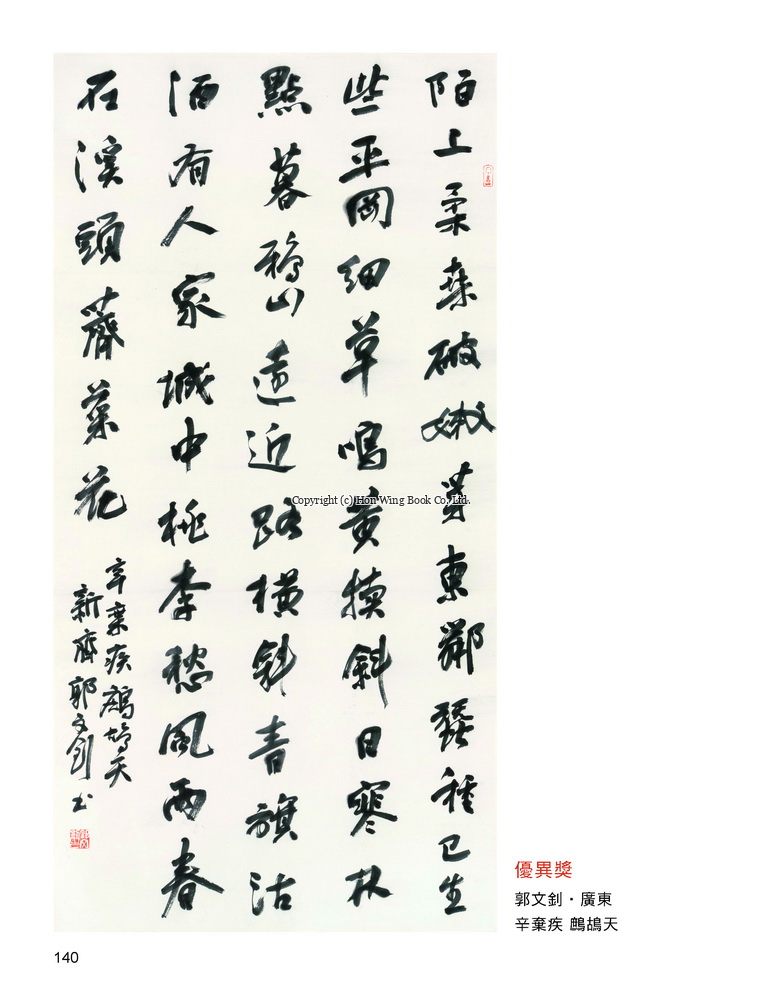 陌上柔桑破嫩東鄰蠶種已生
些平岡細草鳴黃犢斜日寒林
點暮鴉山遠近路橫斜青旗沽
酒有人家城中桃李愁風雨春
在溪頭薺菜花
辛棄疾鷓鴣天
新齊郭文釗书
Copyright (c) Hon Wing Book Co. Ltd.
優異獎
郭文釗・廣東
辛棄疾 鷓鴣天
140